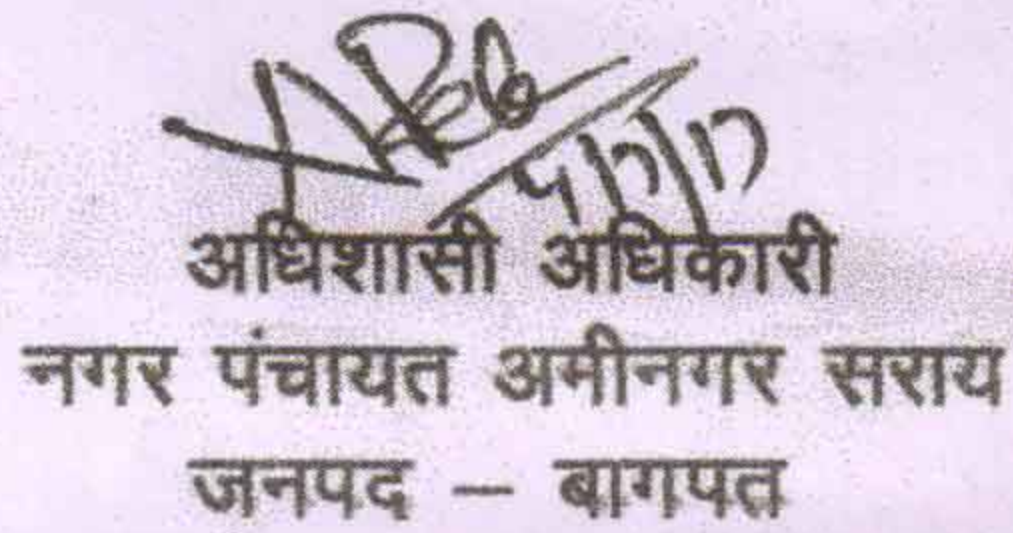 अधिशासी अधिकारी
नगर पंचायत अमीनगर सराय
जनपद – बागपत